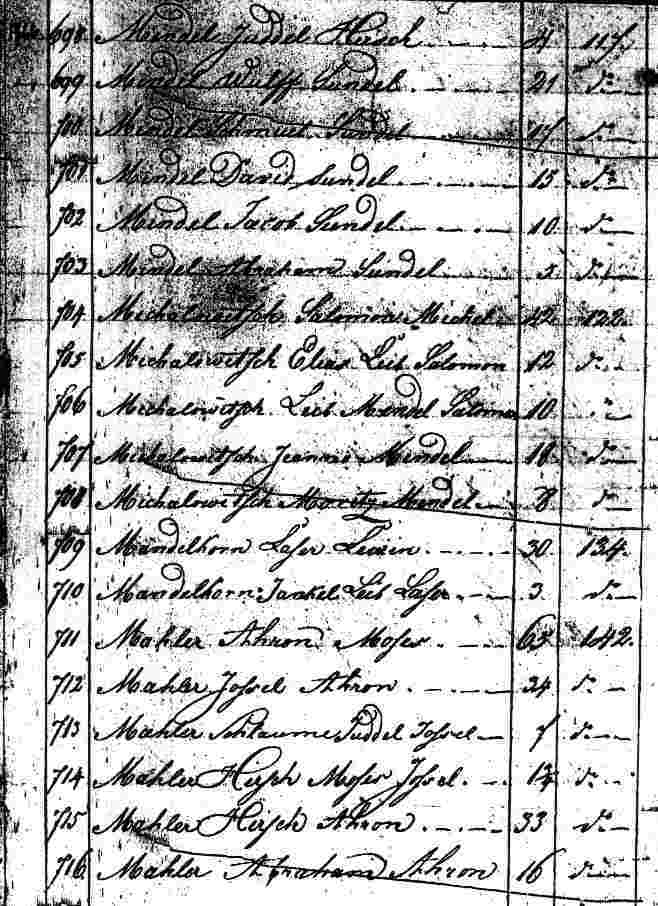 698 Mendel Juddel Hirsch 117.
699 Mendel Wulff Sundel 21 do
700 Mendel Schmuel Sundel 17 do
701 Mendel David Sundel 15 do
702 Mendel Jacob Sundel 10 do
703 Mendel Abraham Sundel do
704 Michalowitsch Salomon Michel 42 122.
705 Michalowitsch Elias Leib Salomon 12 do
706 Michalowitsch Leib Mendel Salomon 10 do
707 Michalowitsch Mendel do
708 Michalowitsch Moritz Mendel 8 do
709 Mandelkorn Laser Lewin 30 134.
710 Mandelkorn Jankel Leib Laser 3 do
711 Mahler Ahron Moses 142.
712 Mahler Jossel Ahron 34 do
713 Mahler Schlaume Juddel Jossel 7 do
714 Mahler Hirsch Moses Jossel do
715 Mahler Hirsch Ahron 33 do
716 Mahler Abraham Ahron 16 do